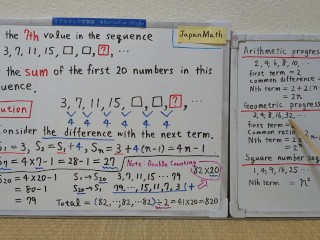 JapanMath
the 7th value in the sequence
3, 7, 11, 15, □, □, ?, ⋯
the sum of the first 20 numbers in this
uence.
ution
3, 7, 11, 15, □, □, ?, ⋯
4 4 4 4 4 4
Consider the difference with the next term.
S₁ = 3, S₂ = S₁+4, Sₙ = 3+4(n-1)=4n-1
S₇ = 4×7-1 = 28-1 = 27
Note: Double Counting
82×20
S₂₀ = 4×20-1
= 80-1
= 79
S₁→S₂₀ 3, 7, 11, 15 ⋯ 79
S₂₀→S₁ 79, ⋯, 15, 11, 7, 3 (+
Total = (82, 82, ⋯, 82, 82)÷2 = 41×20 = 820
Arithmetic progres
2, 4, 6, 8, 10, ⋯
first term = 2
Common
Nth term = 2+2(n
= 2n
Geometric progres
2, 4, 8, 16, 32, ⋯
first term =
Common ratio =
Nth term = 2
= 2ⁿ
Square number seq
1, 4, 9, 16, 25 ⋯
Nth term = n²